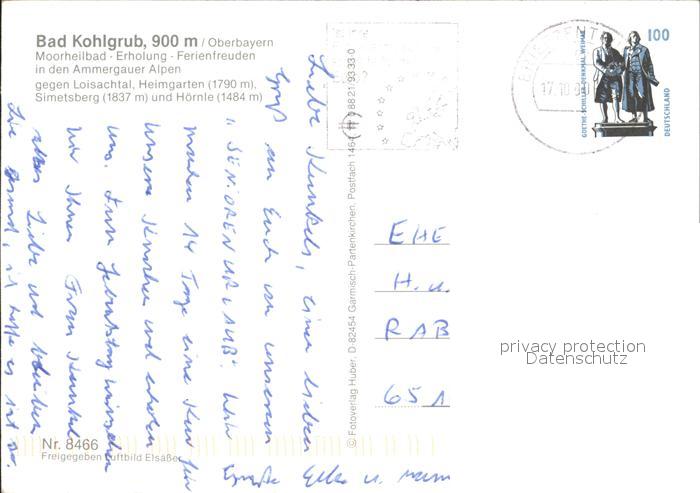 Bad Kohlgrub, 900 m / Oberbayern
Moorheilbad · Erholung · Ferienfreuden
in den Ammergauer Alpen
gegen Loisachtal, Heimgarten (1790 m),
Simetsberg (1837 m) und Hörnle (1484 m)
Liebe Kunkels, einen lieben
Gruß an Euch von unserem
"SENIORENURLAUB". Wir
machen 14 Tage eine Kur für
unsere Knochen und erholen
uns. Zum Geburtstag wünschen
wir Ihnen Frau Kunkel
alles Liebe und bleiben
Sie gesund, ich hoffe es ist so.
Grüße Elke u.
Nr. 8466
Freigegeben Luftbild Elsäßer
© Fotoverlag Huber, D-82454 Garmisch-Partenkirchen, Postfach 1464
88 21 / 93 33-0
17.10.
GOETHE-SCHILLER-DENKMAL WEIMAR
100
DEUTSCHLAND
EHE
H. u.
RAB
651
privacy protection
Datenschutz